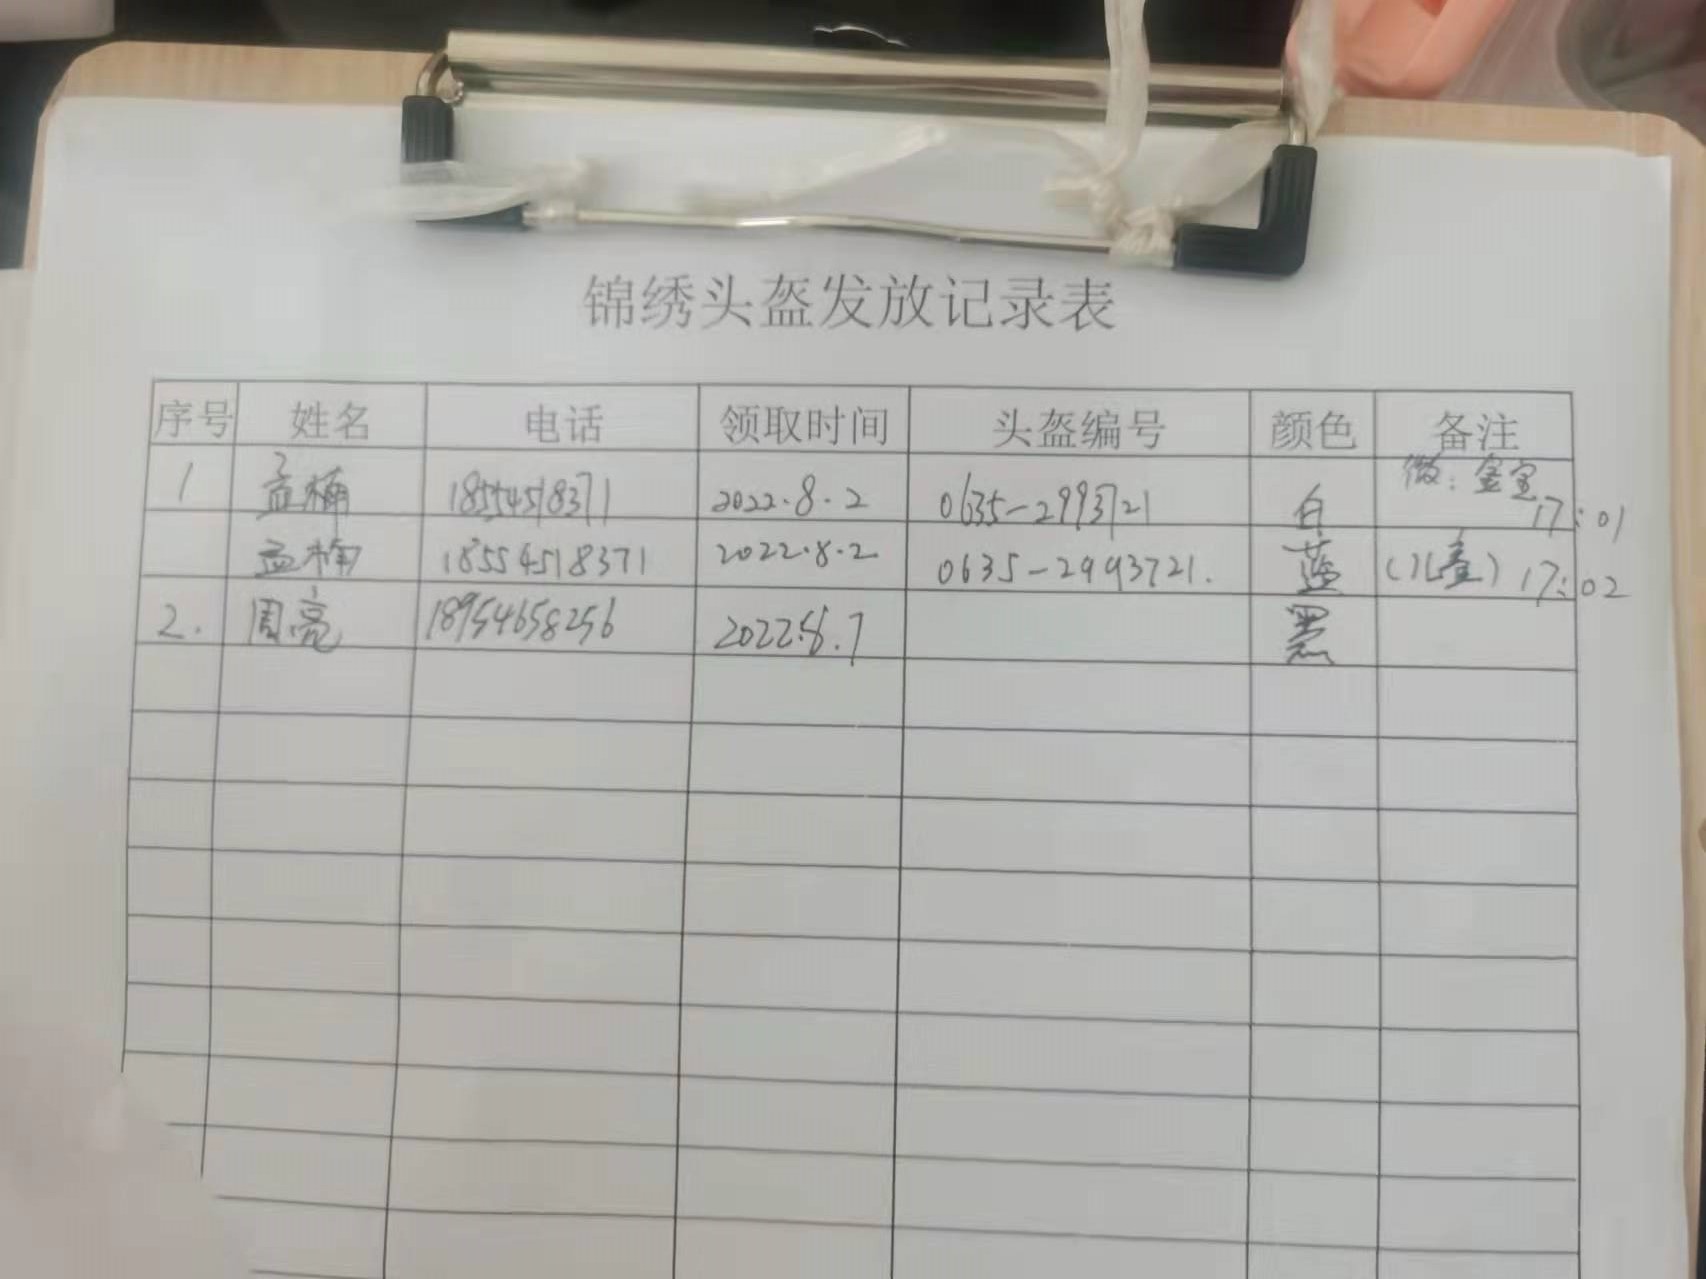 锦绣头盔发放记录表
序号 姓名 电话 领取时间 头盔编号 颜色 备注
1 孟楠 18554518371 2022.8.2 0635-2993721 白 微：金宝 17:01
孟楠 18554518371 2022.8.2 0635-2993721. 蓝 (儿童) 17:02
2. 周亮 18954658256 2022.8.7 黑